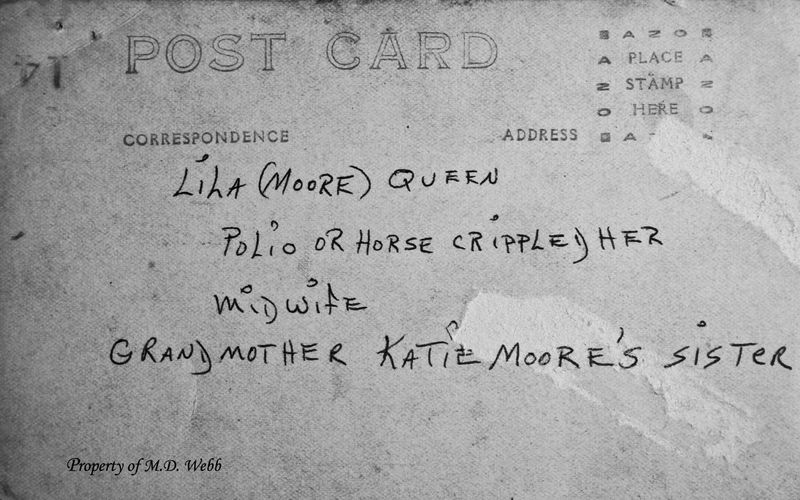 POST CARD
AZO
A PLACE A
Z STAMP Z
O HERE O
CORRESPONDENCE
ADDRESS
A
LiLA (MOORE) QUEEN
POLiO OR HORSE CRiPPLED HER
MiDWiFE
GRANDMOTHER KATiE MOORE'S SiSTER
Property of M.D. Webb